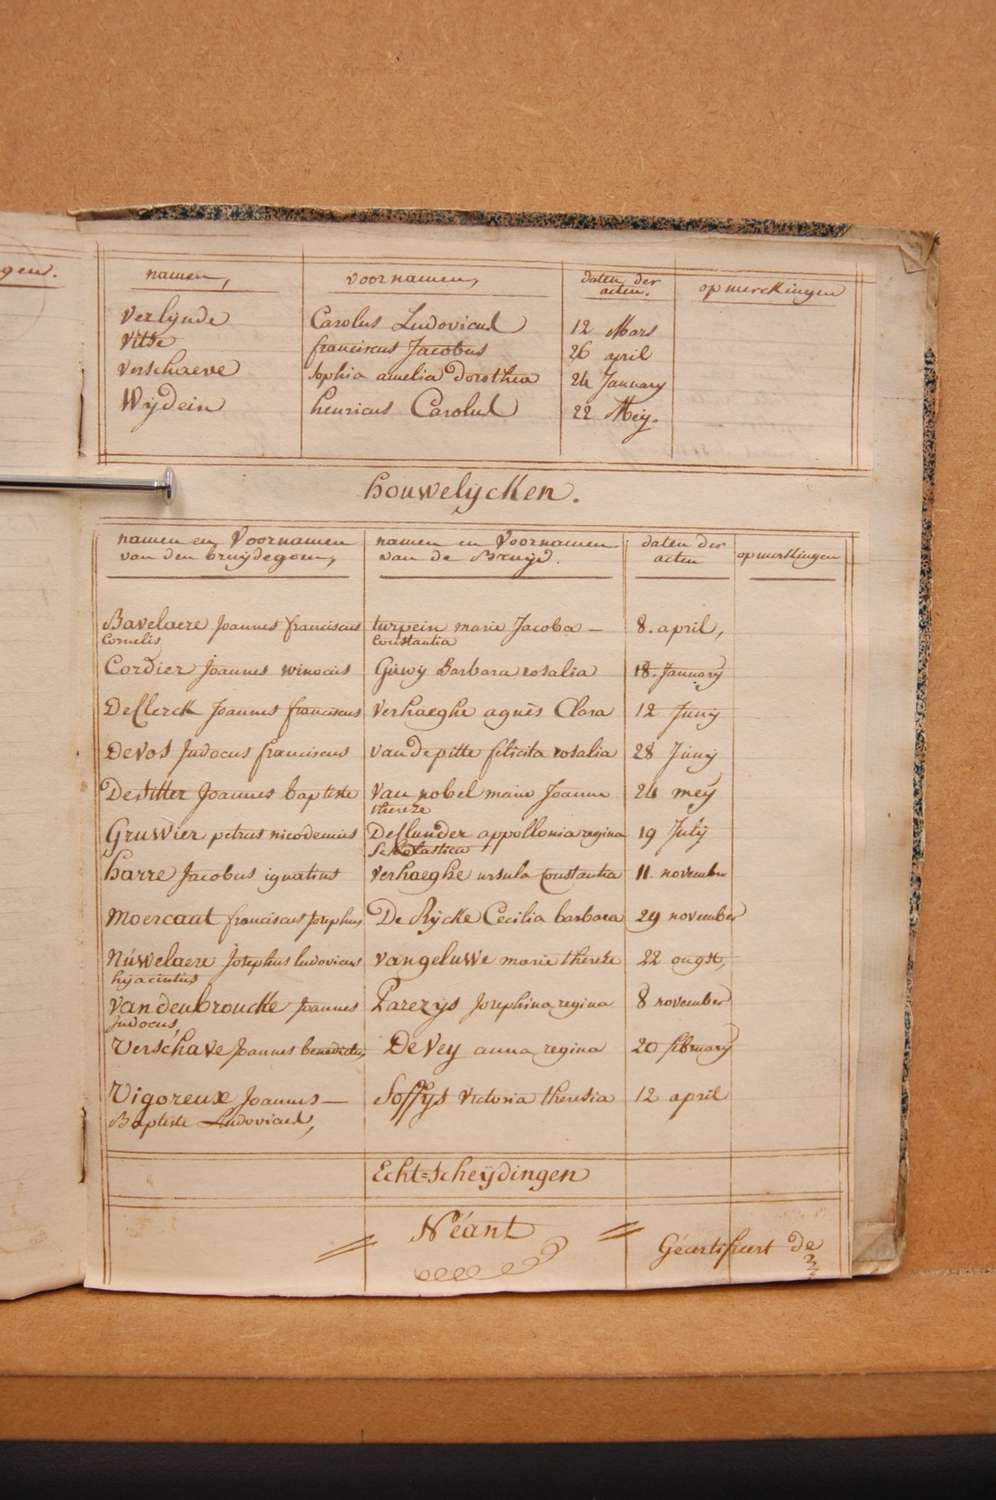 gen.
namen, voornamen, daten der acten. opmerckingen
Verlynde Carolus Ludovicus 12 Mars
Vitse franciscus Jacobus 26 april
Verschaeve sophia amelia dorothea 24 January
Wijdein henricus Carolus 22 Meij.
houwelijcken.
namen en Voornamen namen en Voornamen daten der opmerckingen
van den bruijdegom, van de Bruijd. acten
Bavelaere Joannes franciscus turpein marie Jacoba — 8. april,
Cornelis constantia
Cordier Joannes winocus Guwij Barbara rosalia 18. January
De Clerck Joannes franciscus Verhaeghe agnès Clara 12 Junij
Devos Judocus franciscus vandepitte felicita rosalia 28 Junij
Desitter Joannes baptiste Van nobel marie Joanne 24 meij
therese
Gruwier petrus nicodemus De flunder appollonia regina 19 Julij
Scholastica
harre Jacobus ignatius Verhaeghe ursula Constantia 11. november
Moercant franciscus Josephus De Rijcke Cecilia barbara 29 november
Núwelaere Josephus ludovicus vangeluwe marie therese 22 ougst,
hyacintus
Vandenbroucke Joannes Parezys Josephina regina 8 november
Judocus,
Verschave Joannes benedictus, De Vey anna regina 20 february
Vigoreux Joannes — Soffys Victoria theresia 12 april
Baptiste Ludovicus,
Echt=scheijdingen
Néant
Gécertifieert de